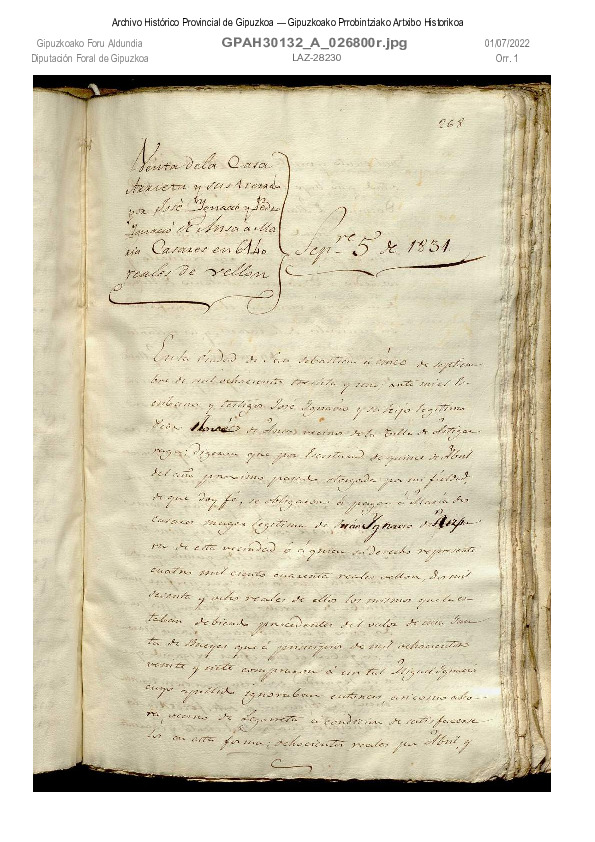 Archivo Histórico Provincial de Gipuzkoa — Gipuzkoako Prrobintziako Artxibo Historikoa
Gipuzkoako Foru Aldundia
Diputación Foral de Gipuzkoa
GPAH30132_A_026800r.jpg
LAZ-28230
01/07/2022
Orr. 1
268
Venta de la Casa
Arrieta y sus
por José Ygnacio y Pedro
Ygnacio de Ansa á Ma
ria Casares en 6140
reales de vellon
Sepre. 5 de 1831
En la ciudad de San Sebastian á cinco de septiem-
bre de mil ochocientos treinta y uno: ante mi el Es-
cribano y testigos José Ygnacio y su hijo legitimo
de vecinos de la Villa de Astigar
raga: digeron que por Escritura de quince de Abril
del año procsimo pasado otorgada por mi fieldad,
de que doy fé, se obligaron á pagar á Maria de
Casares muger legitima de Juan Ygnacio de
de esta vecindad ó á quien su derecho represente
cuatro mil ciento cuarenta reales vellon, dos mil
sesenta y reales de ellos los mismos que la es-
taban debiendo procedentes del valor de una Jun-
ta de Bueyes que á principios de mil ochocientos
veinte y siete compraron á un tal Miguel Ygnacio
cuyo apellido ignoraban entonces, asi como aho-
ra, vecino de á condicion de satisfacerse-
los en esta forma; ochocientos reales por Abril y